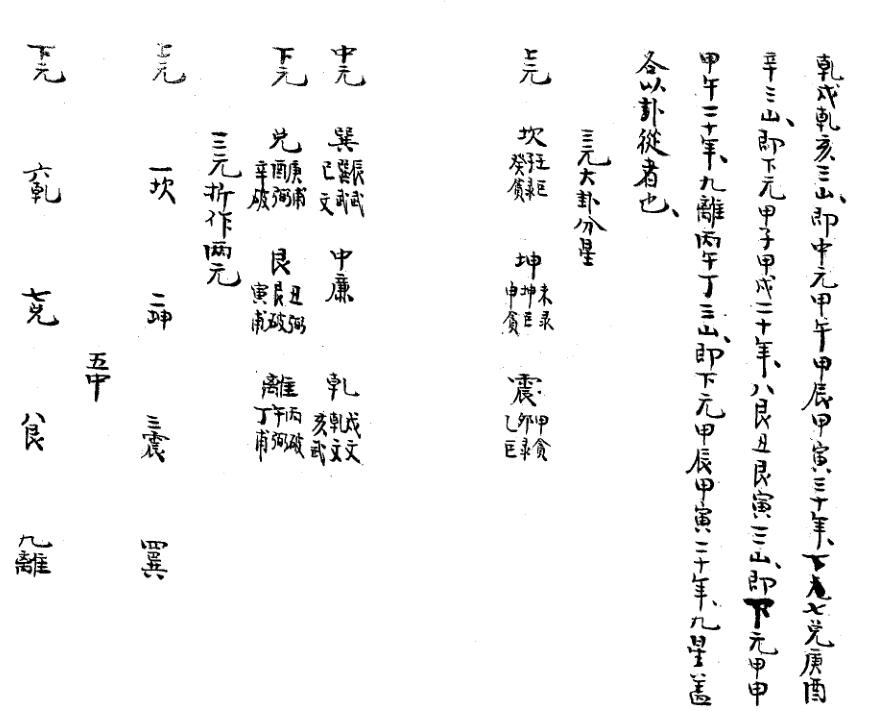 乾戌乾亥三山、即中元甲午甲辰甲寅三十年、下元七兌庚酉
辛三山、即下元甲子甲戌二十年、八艮丑艮寅三山、即下元甲申
甲午二十年、九離丙午丁三山、即下元甲辰甲寅二十年、九星蓋
各以卦從者也、
三元大卦分星
上元 坎 壬巨 子彔 癸貪 坤 未彔 坤巨 申貪 震 甲貪 卯彔 乙巨
中元 巽 辰武 巽武 巳文 中廉 乾 戌文 乾文 亥武
下元 兌 庚甫 酉弼 辛破 艮 丑弼 艮破 寅甫 離 丙破 午弼 丁甫
三元折作兩元
上元 一坎 二坤 三震 四巽
五中
下元 六乾 七兌 八艮 九離